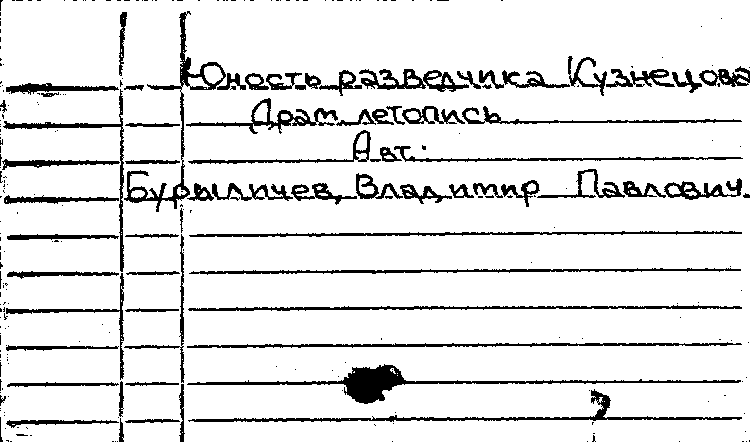 Юность разведчика Кузнецова
Драм. летопись.
Авт.:
Бурыличев, Владимир Павлович.